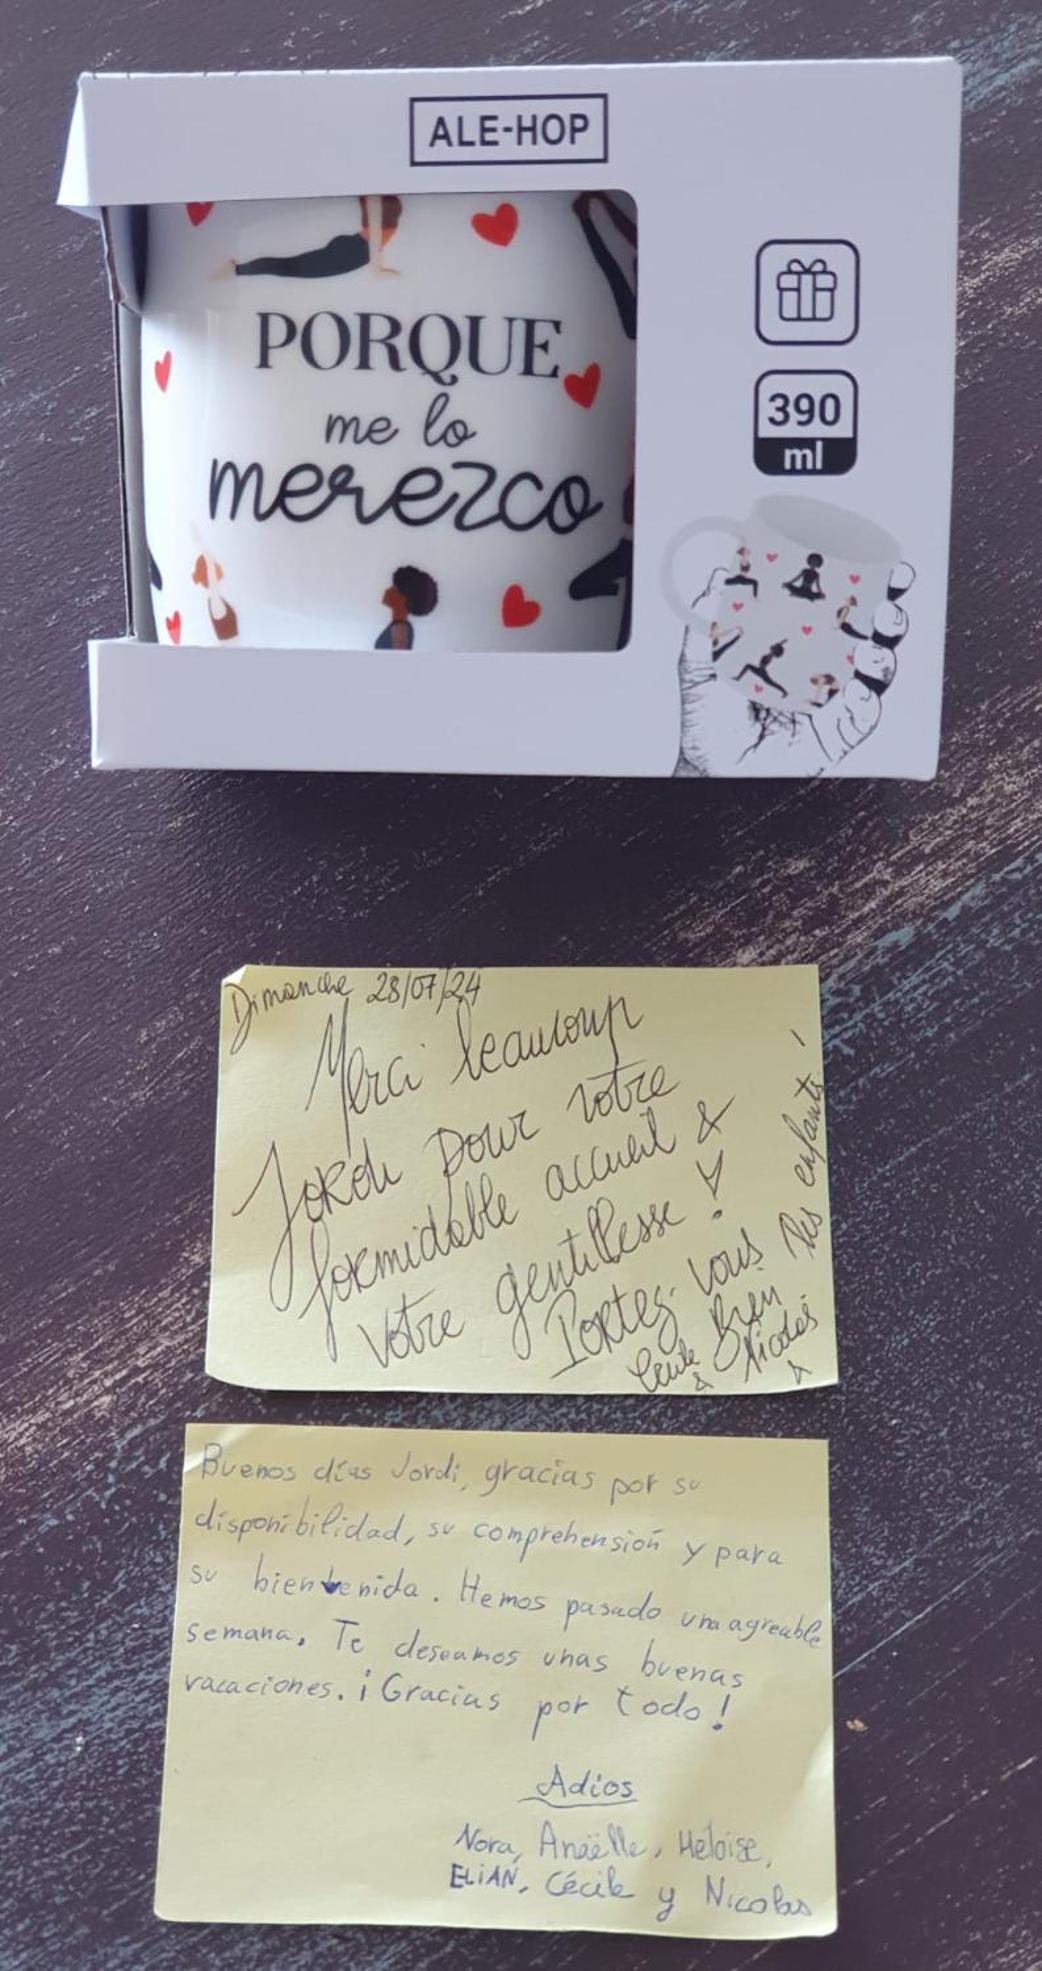 ALE-HOP
PORQUE
me lo
merezco
390
ml
Dimanche 28/07/24
Merci beaucoup
Jordi pour votre
formidable accueil &
votre gentillesse !
Portez-vous
Bien
Cécile
&
Nicolas
&
les enfants !
Buenos días Jordi, gracias por su
disponibilidad, su comprehensión y para
su bienvenida. Hemos pasado una agreable
semana. Te deseamos unas buenas
vacaciones. ¡Gracias por todo!
Adios
Nora, Anaëlle, Héloïse,
ELIAN, Cécile y Nicolas